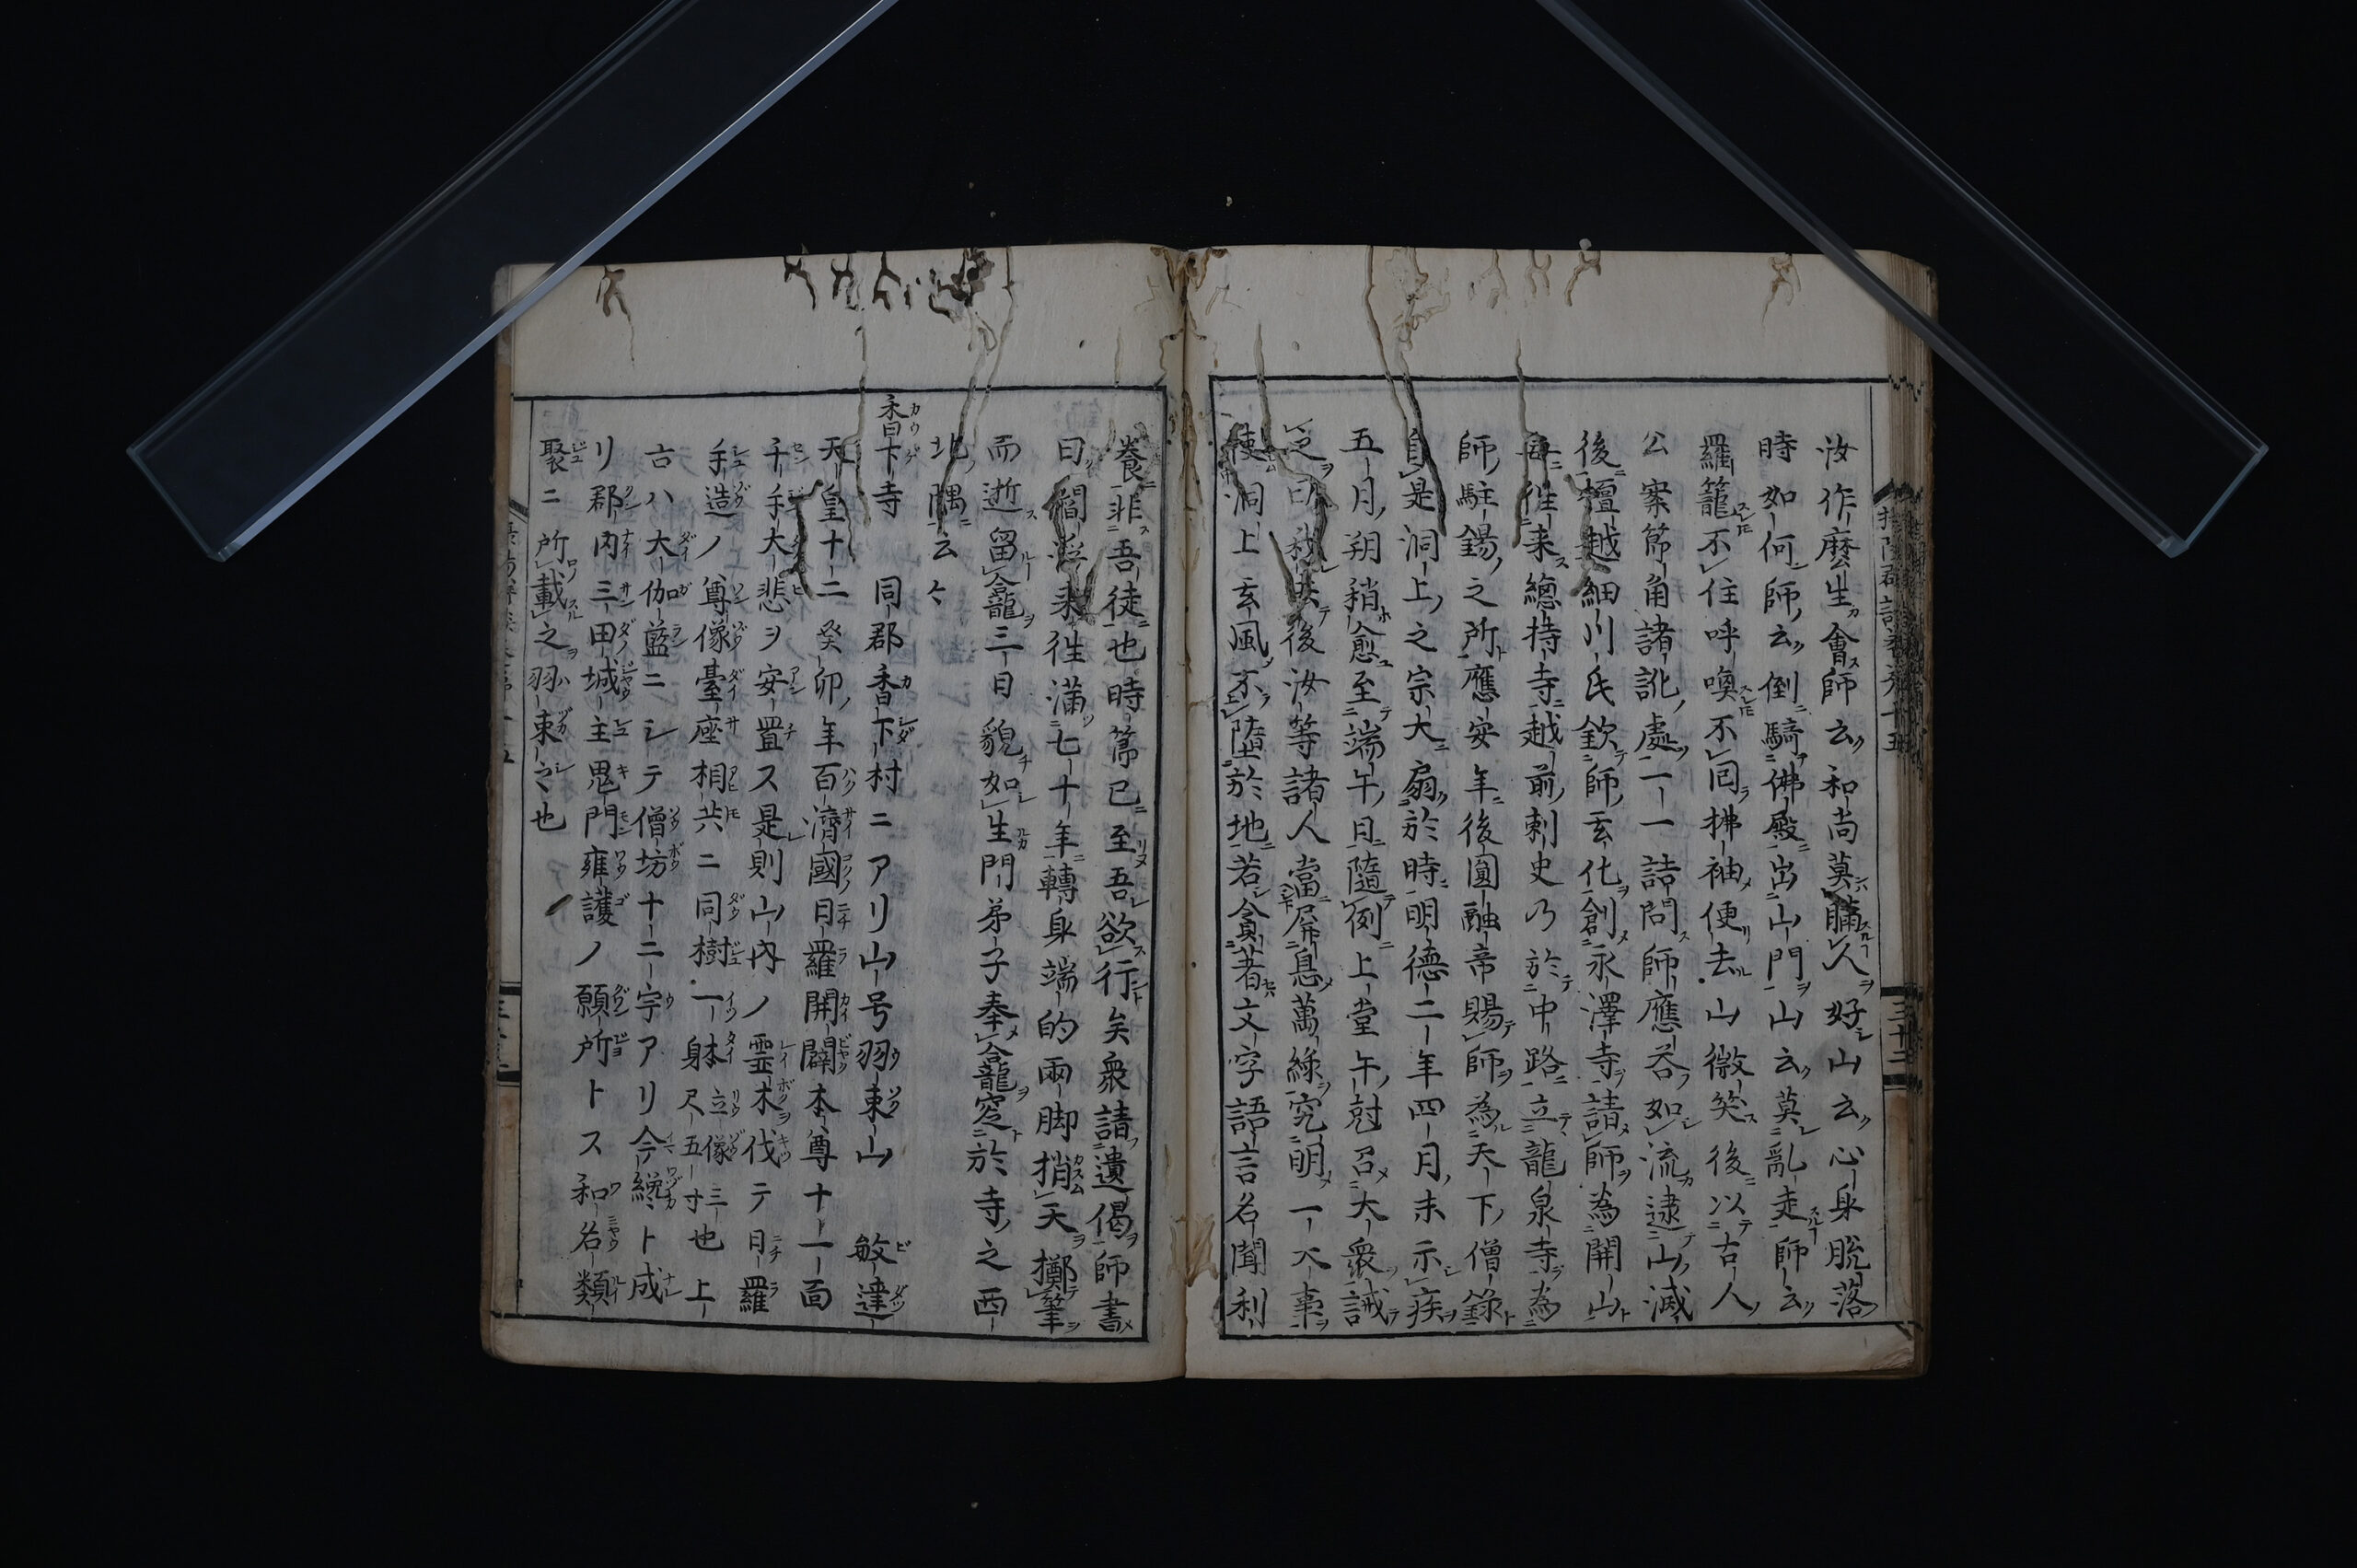 汝作麼生會師云和尚莫瞞人好山云心身脫落
時如何師云倒騎佛殿出山門山云莫亂走師云
羅籠不住呼喚不回拂袖便去山微笑後以古人
公案節角諸訛處一一詰問師應答如流逮山滅
後檀越細川氏欽師玄化創永澤寺請師為開山
毎往来總持寺越前刺史乃於中路立龍泉寺為
師駐錫之所應安年後圓融帝賜師為天下僧錄
自是洞上之宗大扇於時明德二年四月末示疾
五月朔稍愈至端午日隨例上堂午尅召大衆誡
之曰我去後汝等諸人當屏息萬緣究明一大事
使洞上玄風不墮於地若貪著文字語言名聞利
養非吾徒也時等已至吾欲行矣衆請遺偈師書
曰來往滿七十年轉身端的兩脚捎天擲筆
而逝留龕三日貌如生門弟子奉龕窆於寺之西
北隅云々
香下寺　同郡香下村ニアリ山号羽束山　敏達
天皇十二癸卯年百濟國日羅開闢本尊十一面
千手大悲ヲ安置ス是則山内ノ靈木伐テ日羅
手造ノ尊像臺座相共ニ同樹一躰立像三尺五寸也上
古ハ大伽藍ニシテ僧坊十二宇アリ今纔ト成
リ郡内三田城主鬼門雍護ノ願所トス和名類
聚ニ所載之羽束之也
三十二